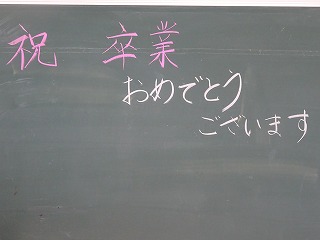 祝 卒業
おめでとう
ございます